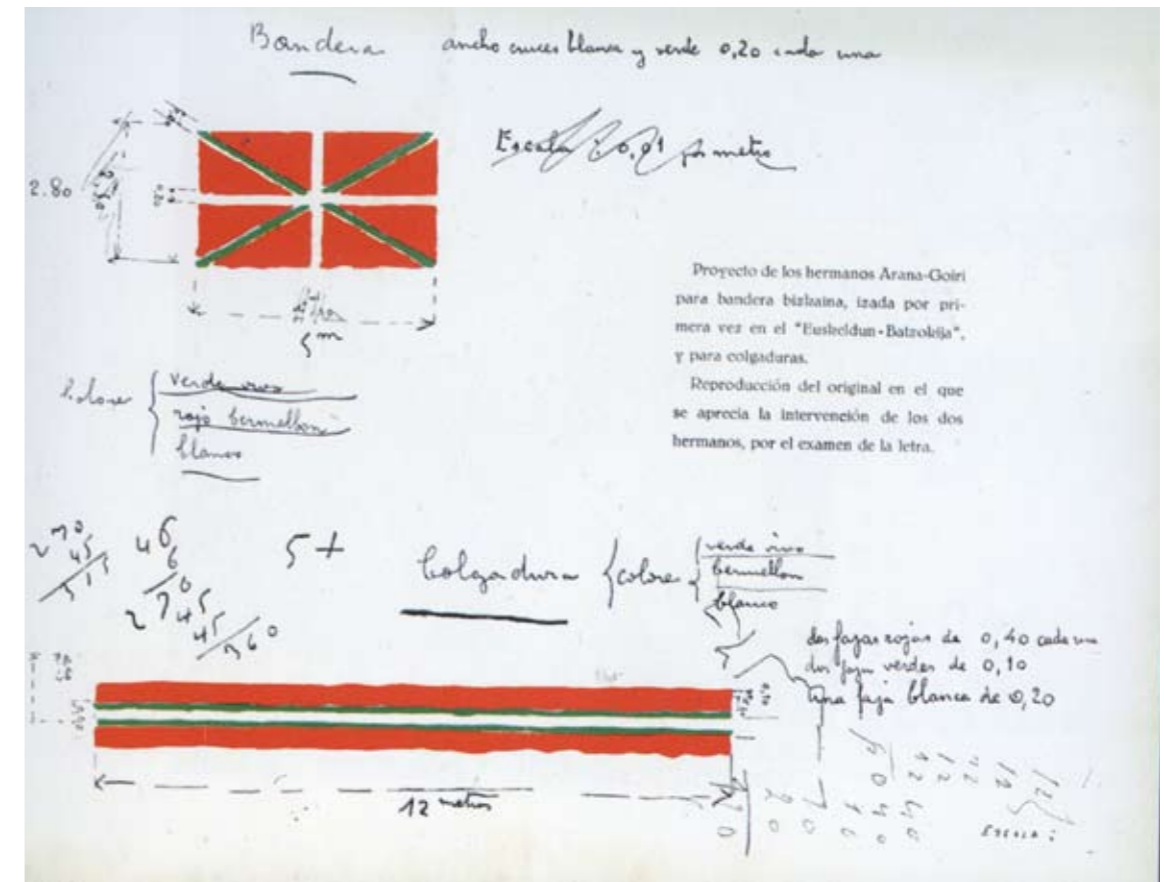 Bandera
ancho cruces blanca y verde 0,20 cada una
Escala : 0,01 por metro
2.80
5 m
Proyecto de los hermanos Arana-Goiri
para bandera bizkaina, izada por pri-
mera vez en el "Euskeldun-Batzokija",
y para colgaduras.
Reproducción del original en el que
se aprecia la intervención de los dos
hermanos, por el examen de la letra.
Colores
verde vivo
rojo bermellon
blanco
270
45
315
46
6
270
45
45
360
5+
Colgadura
colores
verde vivo
bermellon
blanco
dos fajas rojas de 0,40 cada una
dos fajas verdes de 0,10
una faja blanca de 0,20
12 metros